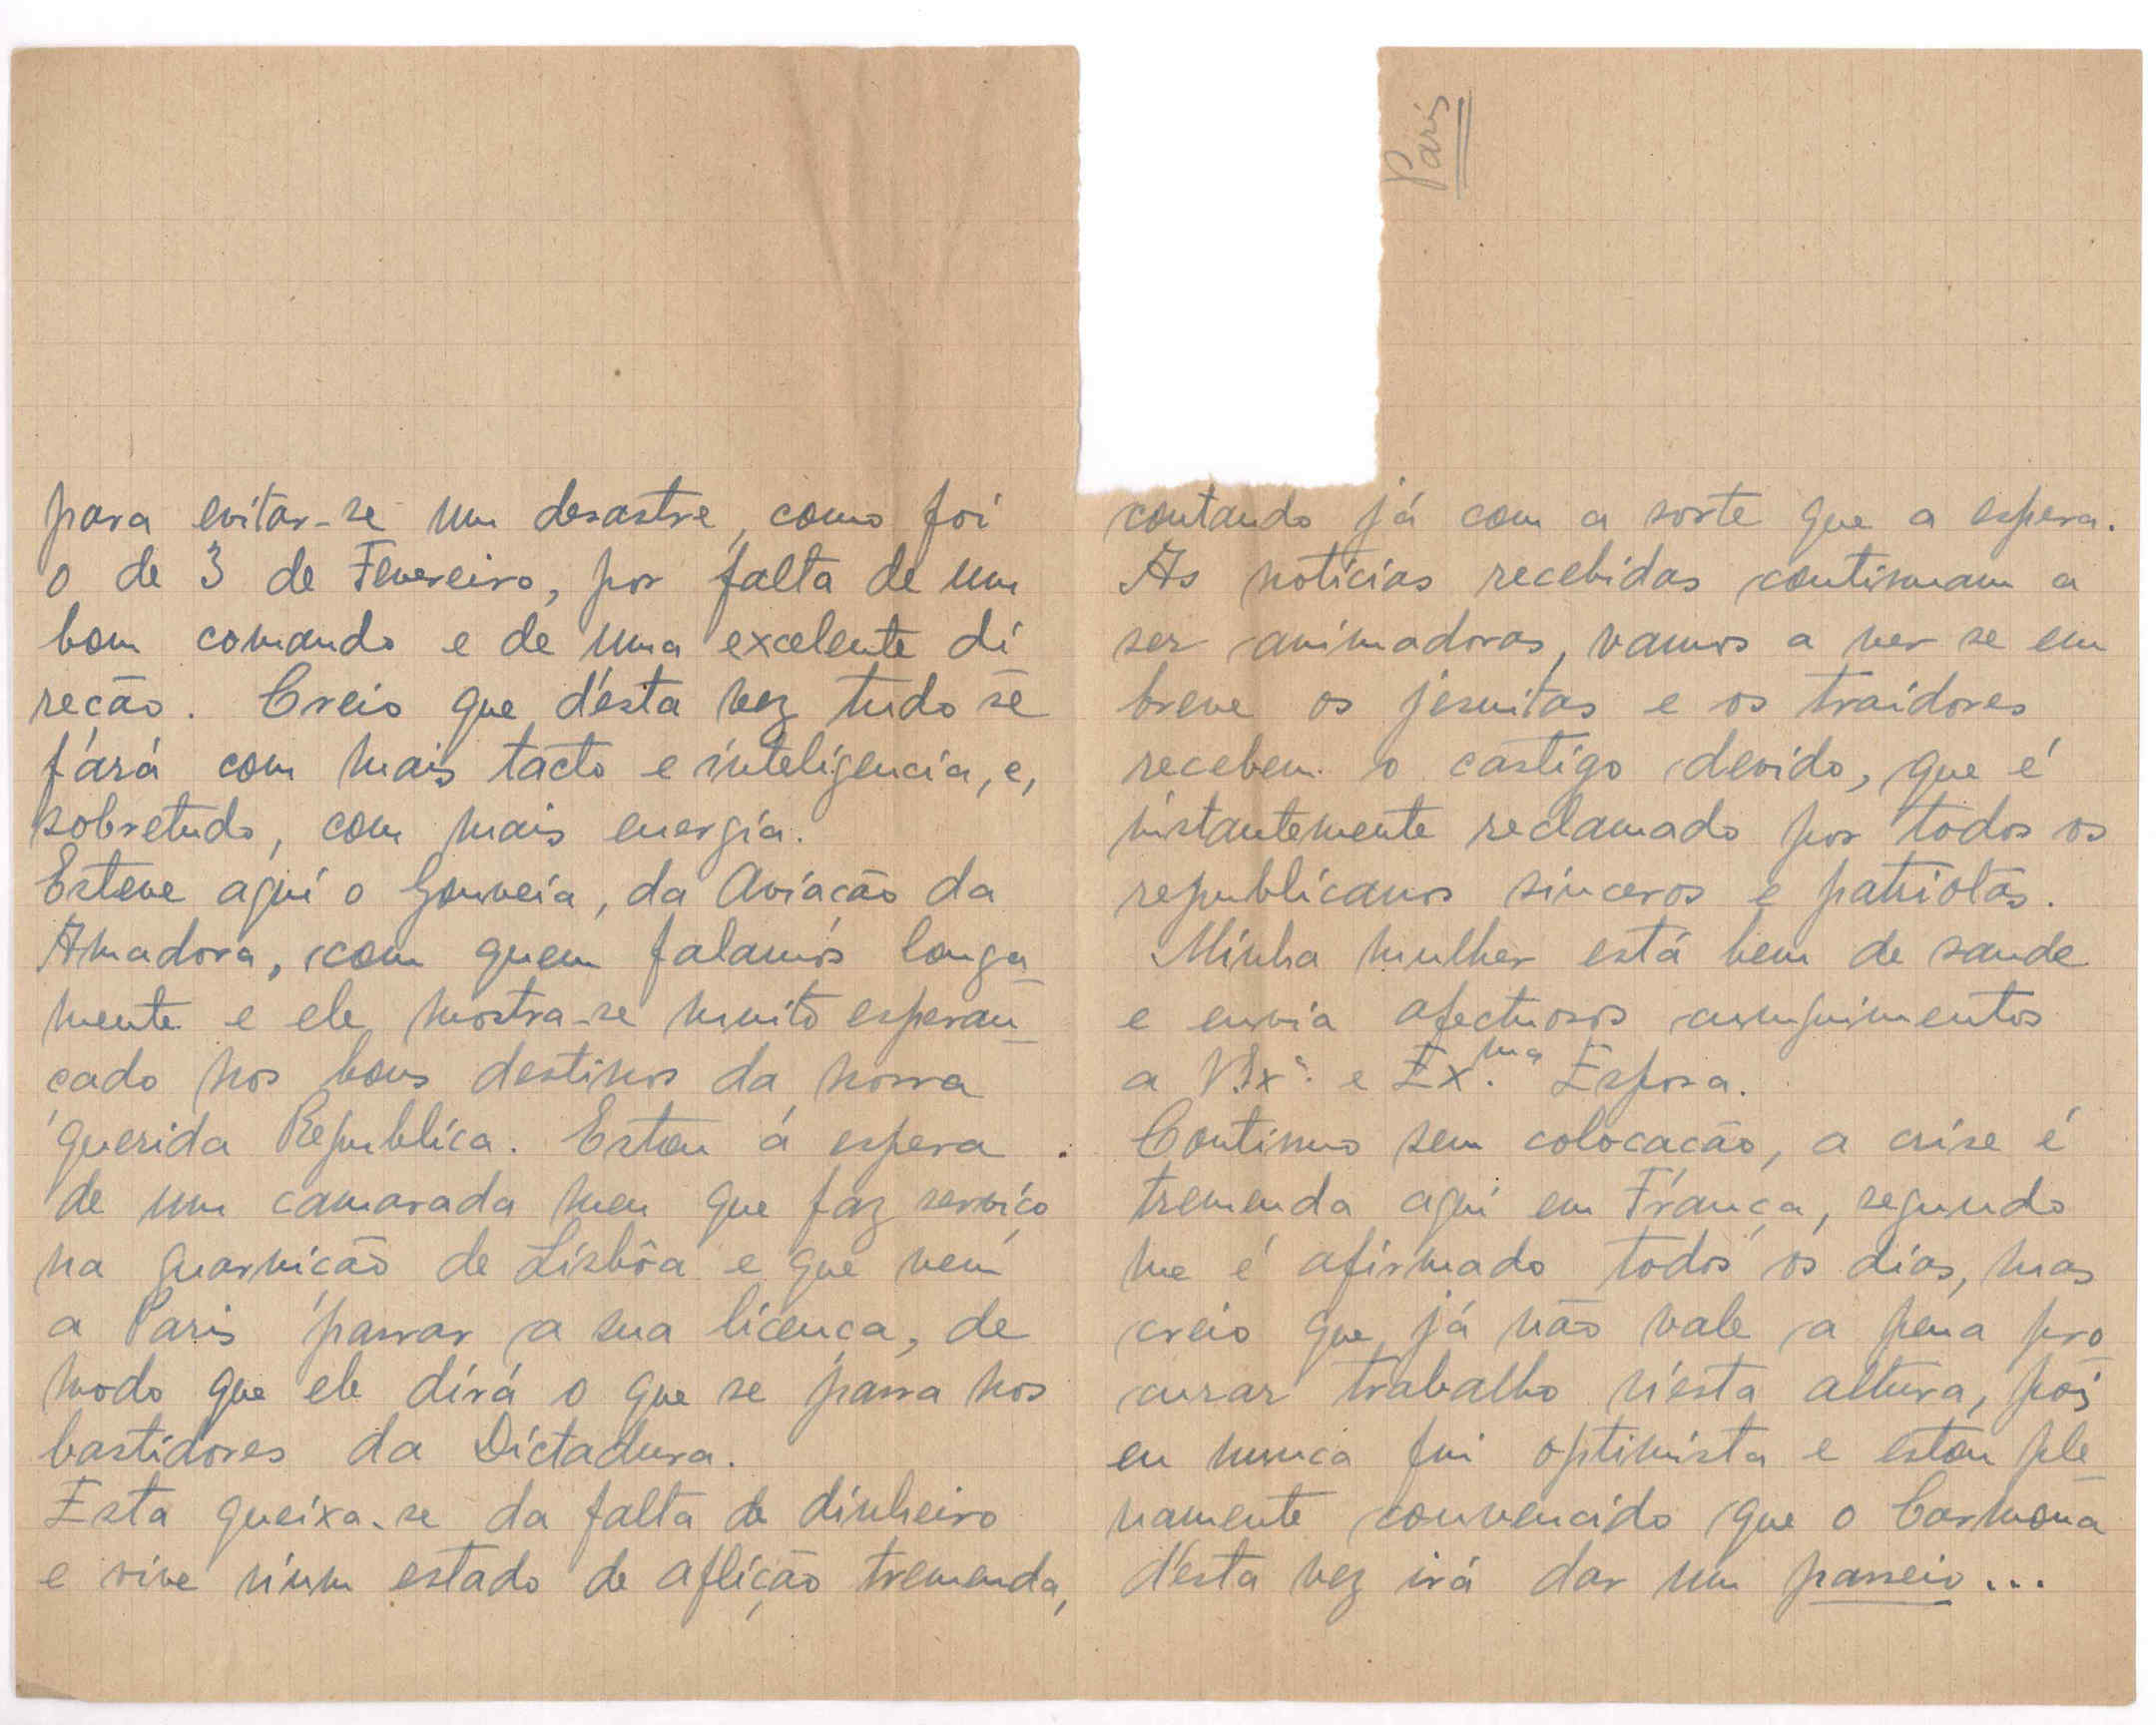 para evitar-se um desastre, como foi
o de 3 de Fevereiro, por falta de um
bom comando e de uma excelente di
reção. Creio que d'esta vez tudo se
fará com mais tacto e inteligencia, e,
sobretudo, com mais energia.
Esteve aqui o Gouveia, da Aviação da
Amadora, com quem falamos longa
mente e ele mostra-se muito esperan
çado nos bons destinos da nossa
querida Republica. Estou á espera
de um camarada meu que faz serviço
na guarnição de Lisbôa e que vem
a Paris passar a sua licença, de
modo que ele dirá o que se passa nos
bastidores da Dictadura.
Esta queixa-se da falta de dinheiro
e vive n'um estado de aflição tremenda,
Paris
contando já com a sorte que a espera.
As noticias recebidas continuam a
ser animadoras, vamos a ver se em
breve os jesuitas e os traidores
recebem o castigo devido, que é
instantemente reclamado por todos os
republicanos sinceros e patriotas.
Minha mulher está bem de saude
e envia afectuosos cumprimentos
a V. Exª. e Ex.ma Esposa.
Continuo sem colocação, a crise é
tremenda aqui em França, segundo
me é afirmado todos os dias, mas
creio que já não vale a pena pro
curar trabalho n'esta altura, pois
eu nunca fui optimista e estou ple
namente convencido que o Carmona
d'esta vez irá dar um passeio...